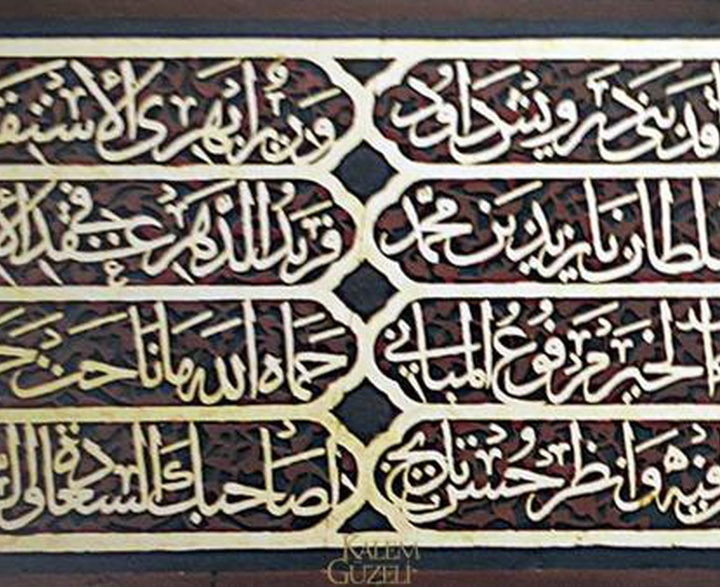 قد بنى درويش داود وزيرا
لطان بايزيد بن محمد فريد الدهر في عقد الا
الخير مرفوع المباني حماه الله ما ناحت
فيه وانظر حسن تاريخ لصاحبك السعادة وال
KALEM GÜZELİ